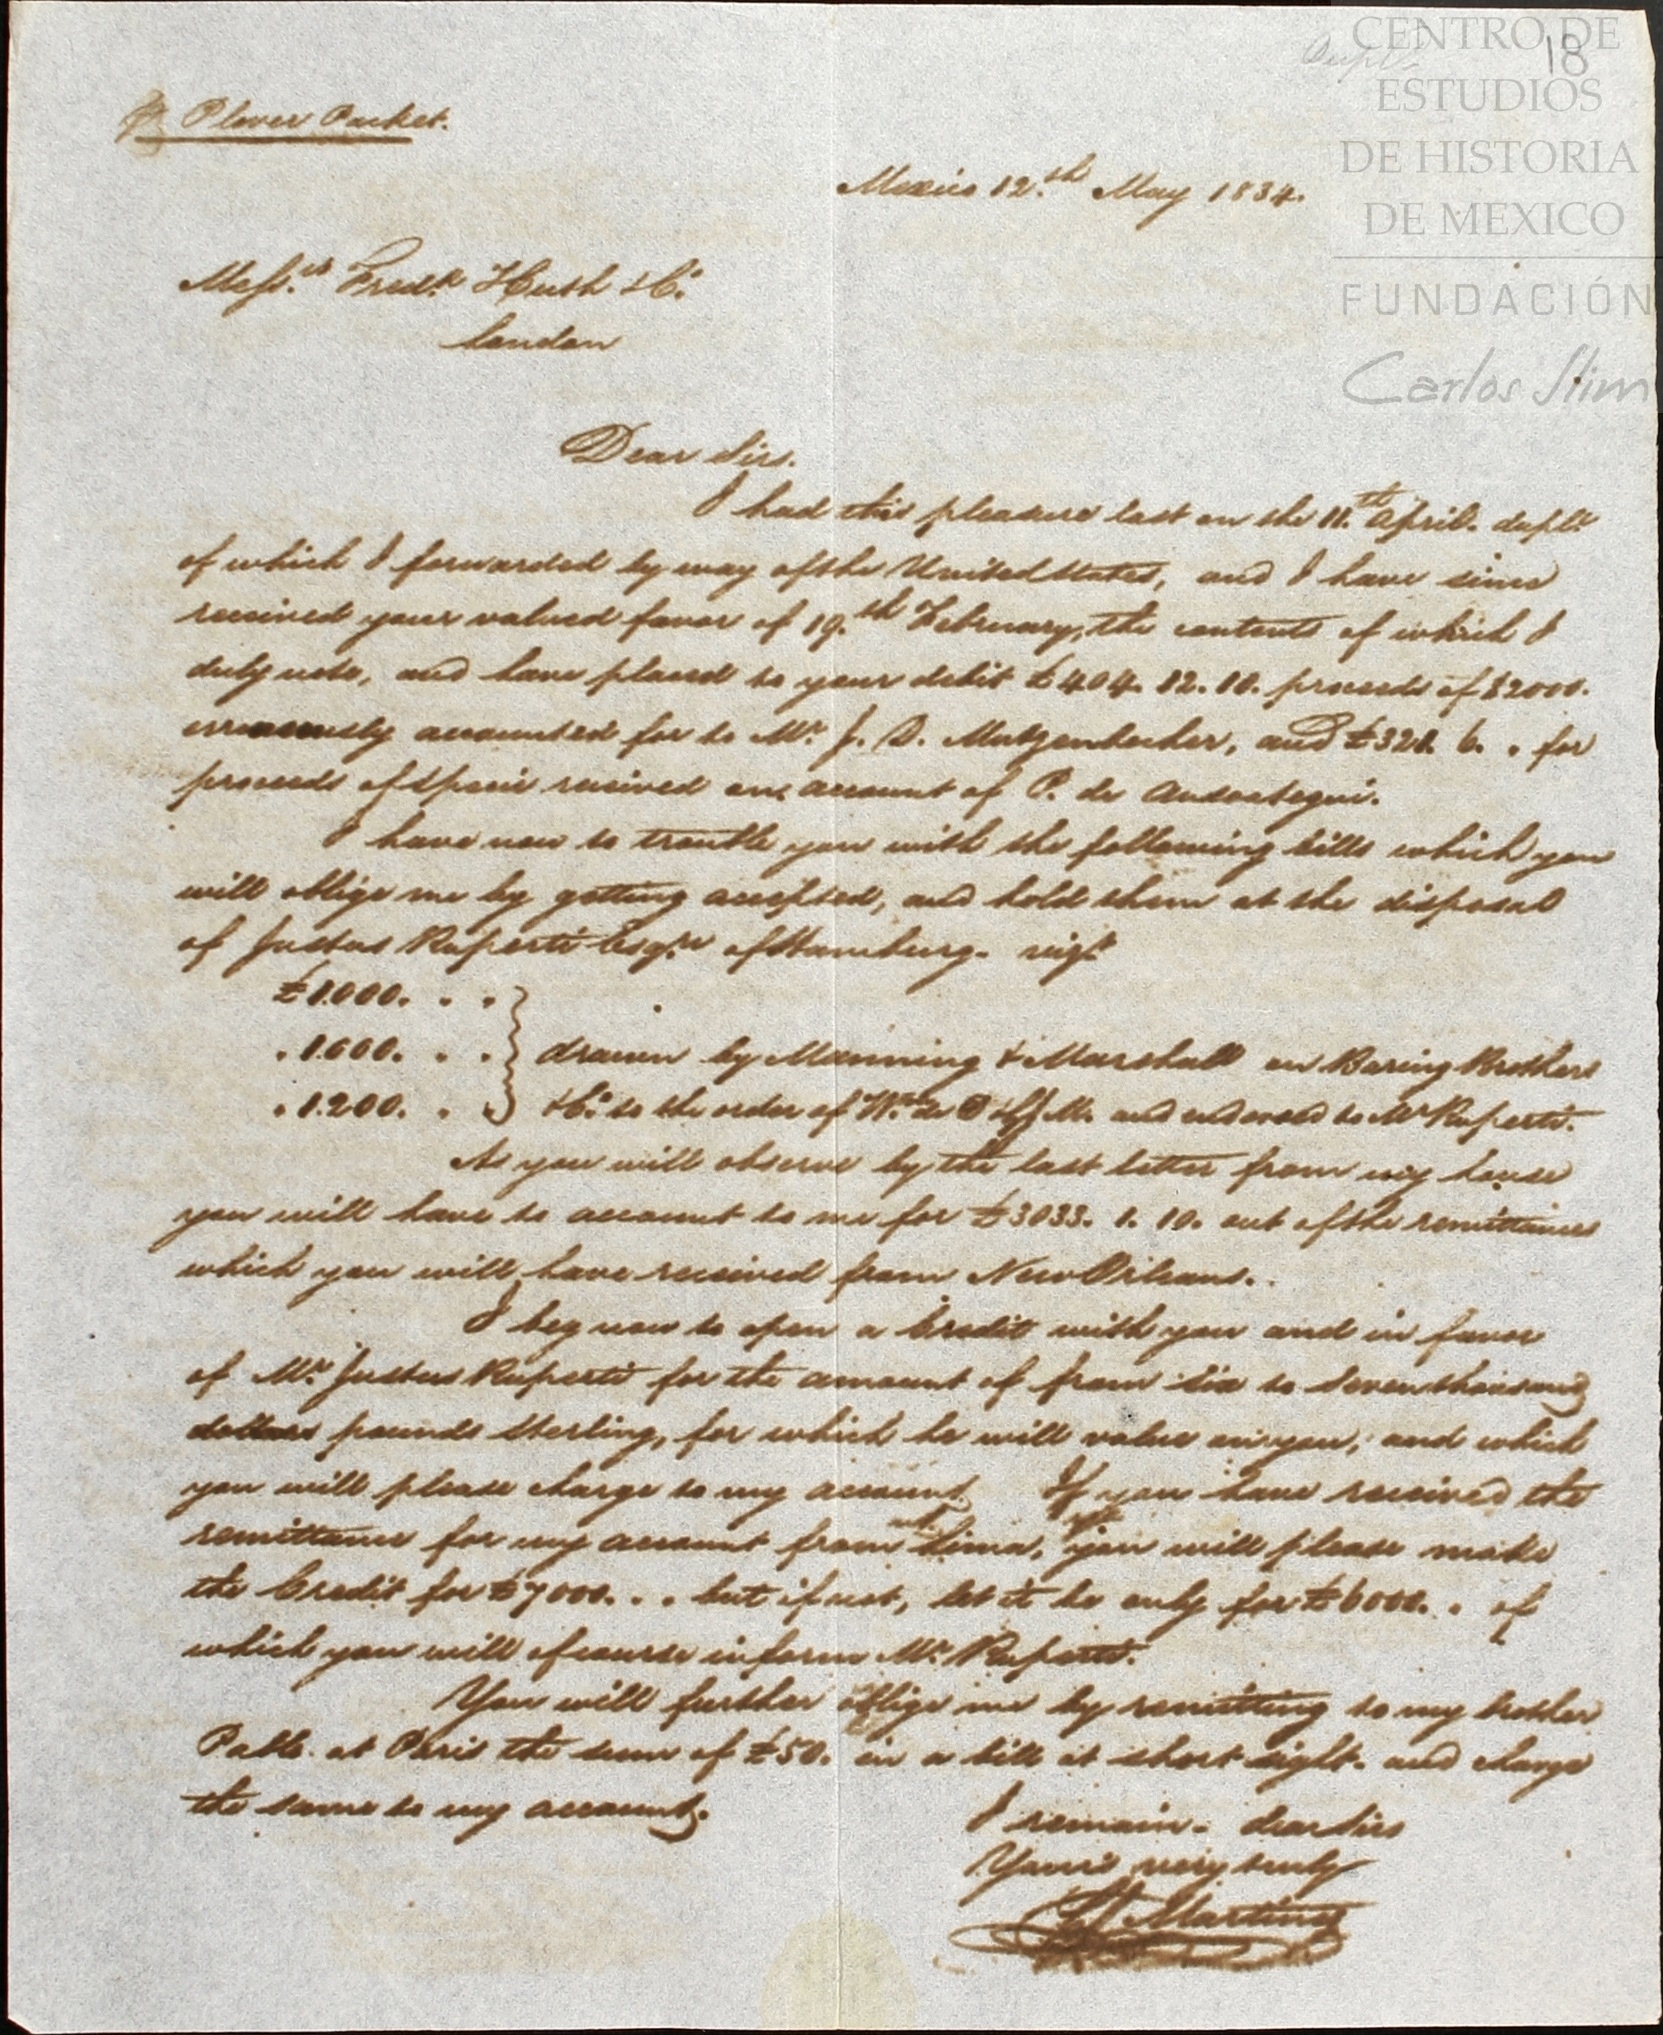 18
CENTRO DE
ESTUDIOS
DE HISTORIA
DE MEXICO
FUNDACIÓN
Carlos Slim
pr Plover Packet.
Mexico 12.th May 1834.
Mess.rs Fred.k Huth & Co.
London
Dear Sirs.
I had this pleasure last on the 11.th April. dupl.
of which I forwarded by way of the United States, and I have since
received your valued favor of 19.th February, the contents of which I
duly note, and have placed to your debit £404. 12. 10. proceeds of $2000.
erroneously accounted for to Mr. J. D. Mutzenbecher, and £321. 6. . for
proceeds of Specie received on account of P. de
I have now to trouble you with the following bills which you
will oblige me by getting accepted, and hold them at the disposal
of Justus Ruperti Esqre of Hamburg. vizt
£1.000. . .
. 1.000. . . drawn by Manning & Marshall on Baring Brothers
. 1.200. . . & Co. to the order of and endorsed to Mr Ruperti.
As you will observe by the last letter from my house
you will have to account to me for £3033. 1. 10. out of the remittances
which you will have received from New Orleans.
I beg now to open a Credit with you and in favor
of Mr. Justus Ruperti for the amount of from six to seven thousand
dollars pounds Sterling, for which he will value on you, and which
you will please charge to my account. If you have received the
remittance for my account from Lima, you will please make
the Credit for £7000. . . but if not, let it be only for £6000. . of
which you will of course inform Mr. Ruperti.
You will further oblige me by remitting to my brother
Pablo at Paris the sum of £50. in a bill at short sight. and charge
the same to my account.
I remain. Dear Sirs
Yours very truly
Martinez